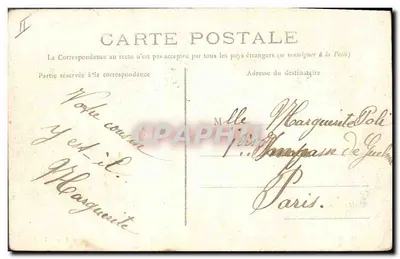 CARTE POSTALE
La Correspondance au recto n'est pas acceptée par tous les pays étrangers (se renseigner à la Poste)
Partie réservée à la correspondance
Adresse du destinataire
Votre cousin
y est-il.
Marguerite
Mlle Marguerite Poli
Impasse de
Paris.